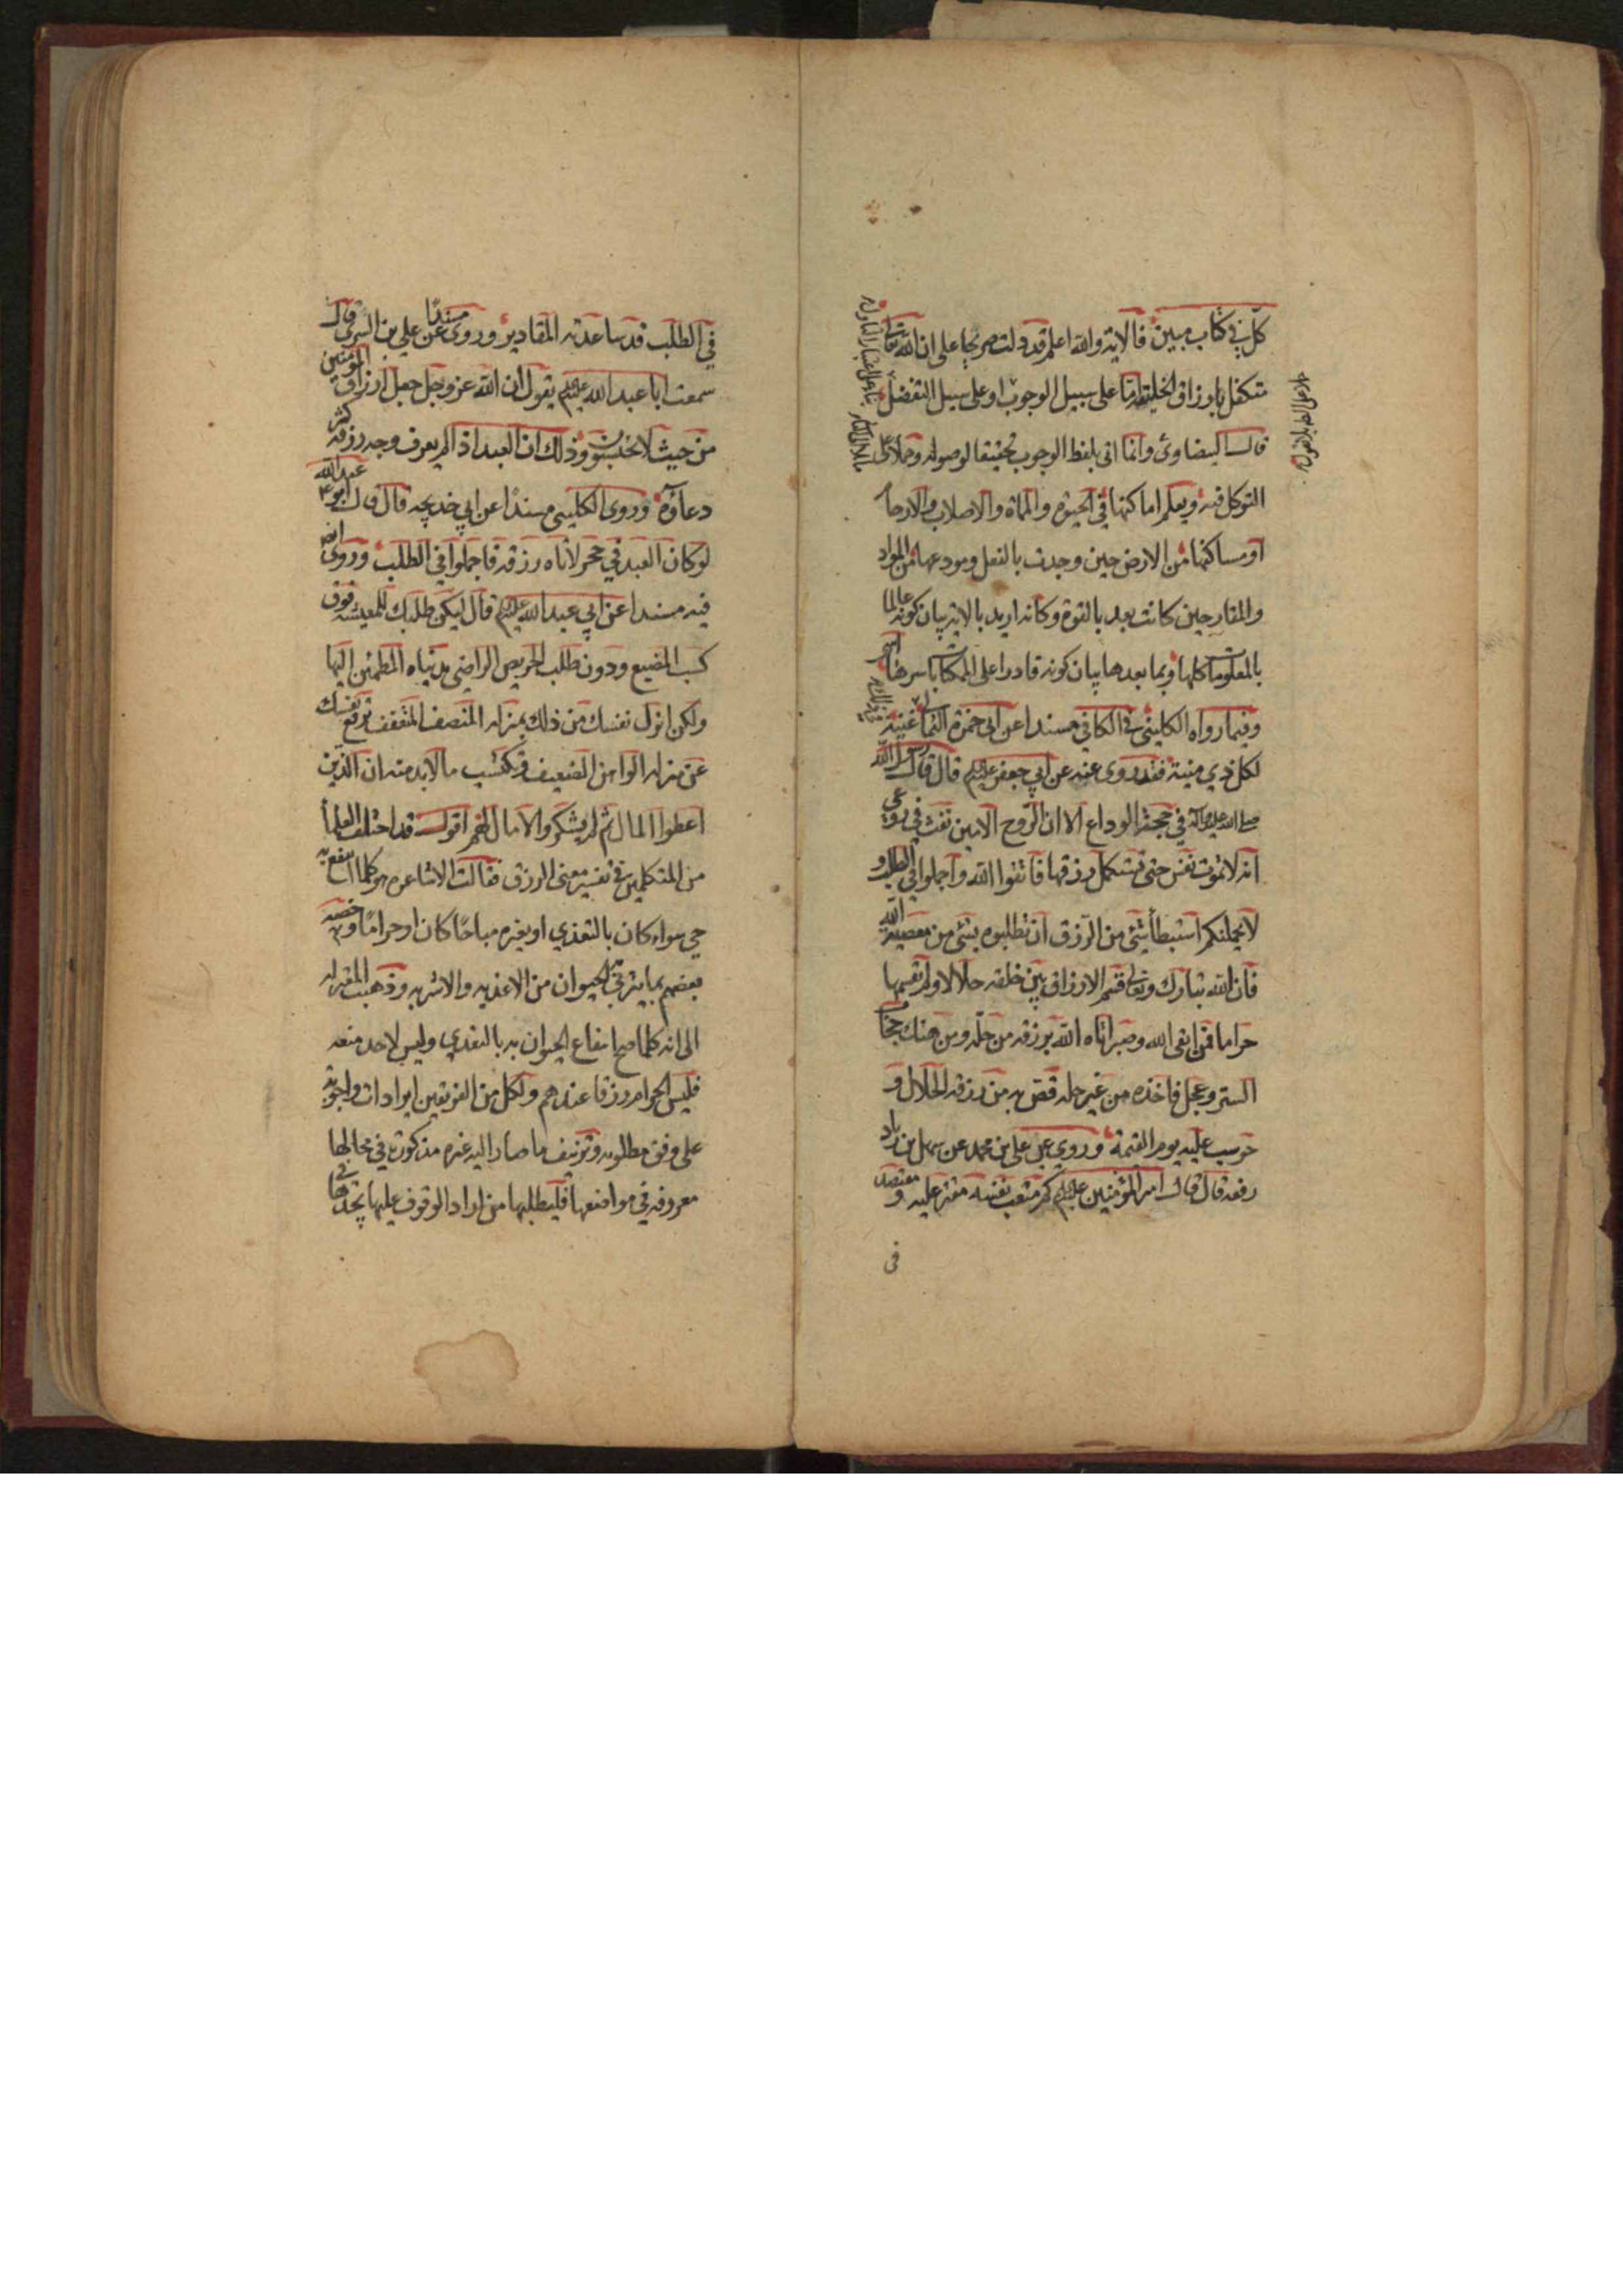 كل في كتاب مبين فالاية والله اعلم قد دلت صريحا على ان الله تعالى
متكفل بارزاق الخليقة اما على سبيل الوجوب او على سبيل التفضل
قال البيضاوى وانما اتى بلفظ الوجوب تحقيقا لوصوله وحملا على
التوكل فيه ويعلم اماكنها في الحيوة والمماة والاصلاب والارحا
او مساكنها من الارض حين وجدت بالفعل ومودعها من المواد
والمقار حين كانت بعد بالقوة وكانه اريد بالاية بيان كونه عالما
بالمعلومات كلها وبما بعدها بيان كونه قادرا على الممكنات باسرها
وفيما رواه الكليني في الكافي مسندا عن ابي حمزة الثمالي غنية
لكل ذي منية فقد روى عنه عن ابي جعفر عليه السلام قال قال رسول الله
صلى الله عليه وآله في حجة الوداع الا ان الروح الامين نفث في روعي
انه لا تموت نفس حتى تستكمل رزقها فاتقوا الله واجملوا في الطلب و
لا يحملنكم استبطأ شئ من الرزق ان تطلبوه بشئ من معصية الله
فان الله تبارك وتعالى قسم الارزاق بين خلقه حلالا ولم يقسمها
حراما فمن اتقى الله وصبر اتاه الله برزقه من حله ومن هتك حجاب
الستر وعجل فاخذه من غير حله قص به من رزقه الحلال و
حوسب عليه يوم القيمة وروي عن علي بن محمد عن سهل بن زياد
رفعه قال قال امير المؤمنين عليه السلام كم متعب نفسه مقتر عليه ومقتصد
في
في الطلب قد ساعدته المقادير وروى مسندًا عن علي بن السري قال
سمعت ابا عبد الله عليه السلام يقول ان الله عز وجل جعل ارزاق المؤمنين
من حيث لا يحتسبون وذلك ان العبد اذا لم يعرف وجه رزقه كثر
دعاؤه وروى الكليني مسندًا عن ابي خديجه قال قال ابو عبد الله
لو كان العبد في حجر لاتاه رزقه فاجملوا في الطلب وروى ايضا
فيه مسندا عن ابي عبد الله عليه السلام قال ليكن طلبك للمعيشه فوق
كسب المضيع ودون طلب الحريص الراضي بدنياه المطمئن اليها
ولكن انزل نفسك من ذلك بمنزله المنصف المتعفف ترفع نفسك
عن منزله الواهن الضعيف وتكتسب ما لابد منه ان الذين
اعطوا المال ثم لم يشكروا لا مال لهم اقول قد اختلف العلمأ
من المتكلمين في تفسير معنى الرزق فقالت الاشاعره هو كلما انتفع به
حي سواء كان بالتغذي او بغيره مباحًا كان او حرامًا وخصه
بعضهم بما يتربى به الحيوان من الاغذيه والاشربه وذهبت المعتزله
الى انه كلما صح انتفاع الحيوان به بالتغدي وليس لاحد منعه
فليس الحرام رزقا عندهم ولكل من الفريقين ايرادات واجوبة
على وفق مطلوبه وتزئيف ما صار اليه غيره مذكورة في محالها
معروفه في مواضعها فليطلبها من اراد الوقوف عليها يجدها في